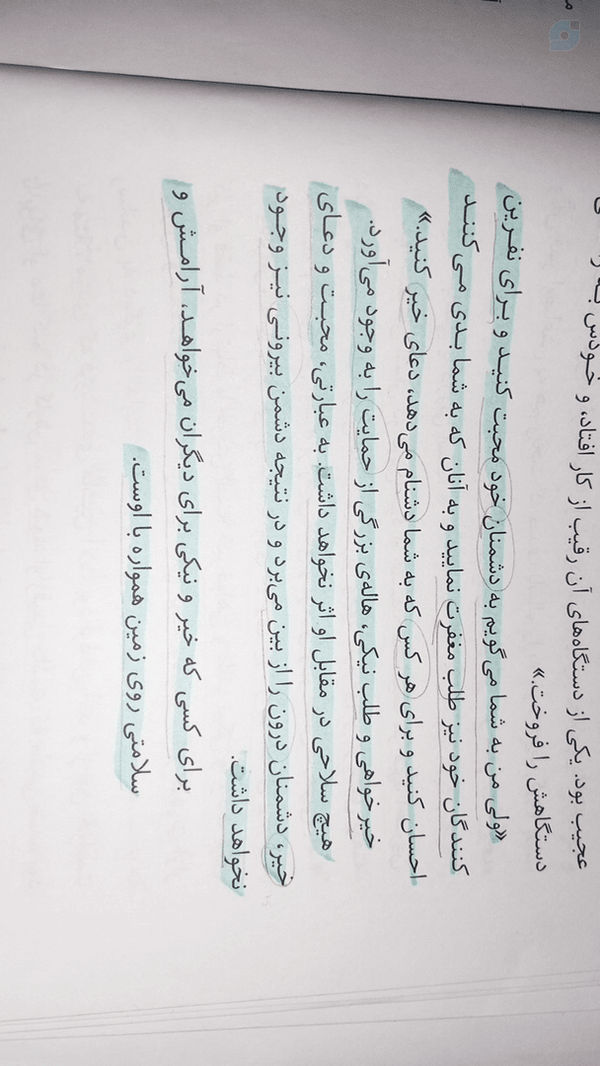 عجیب بود. یکی از دستگاه‌های آن رقیب از کار افتاد، و خودش
دستگاهش را فروخت.»
«ولی من به شما می‌گویم به دشمنان خود محبت کنید و برای نفرین
کنندگان خود نیز طلب مغفرت نمایید و به آنان که به شما بدی می‌کنند
احسان کنید و برای هر کس که به شما دشنام می‌دهد، دعای خیر کنید.»
خیرخواهی و طلب نیکی، هاله‌ی بزرگی از حمایت را به وجود می‌آورد.
هیچ سلاحی در مقابل او اثر نخواهد داشت. به عبارتی، محبت و دعای
خیر، دشمنان درون را از بین می‌برد و در نتیجه دشمن بیرونی نیز وجود
نخواهد داشت.
برای کسی که خیر و نیکی برای دیگران می‌خواهد، آرامش و
سلامتی روی زمین همواره با اوست.